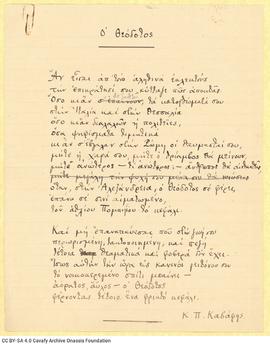 Ὁ Θεόδοτος
Ἂν εἶσαι ἀπ' τοὺς ἀληθινὰ ἐκλεκτούς
τὴν ἐπικράτησί σου κύτταζε πῶς ἀποκτᾶς
Ὅσο κι ἂν δοξασθεῖς, τὰ κατορθώματά σου
στὴν Ἰταλία καὶ στὴν Θεσσαλία
ὅσο κι ἂν διαλαλοῦν ἡ πολιτεῖες,
ὅσα ψηφίσματα τιμητικά
κι ἂν σ' ἔβγαλαν στὴν Ρώμη οἱ θαυμασταί σου,
μήτε ἡ χαρά σου, μήτε ὁ θρίαμβος θὰ μείνουν,
μήτε ἀνώτερος — τί ἀνώτερος; — ἄνθρωπος θὰ αἰσθανθεῖς
ὅταν, στὴν Ἀλεξάνδρεια, ὁ Θεόδοτος σὲ φέρει,
ἐπάνω σὲ σινὶ αἱματωμένο,
τοῦ ἀθλίου Πομπηΐου τὸ κεφάλι.
Καὶ μὴ ἐπαναπαύεσαι ποὺ στὴν ζωή σου
περιωρισμένη, τακτοποιημένη, καὶ πεζή
τέτοια θεαματικὰ καὶ φοβερὰ δὲν ἔχει.
Ἴσως αὐτὴν τὴν ὥρα εἰς κανενὸς γείτονός σου
τὸ νοικοκερεμένο σπίτι μπαίνει —
ἀόρατος, ἄϋλος — ὁ Θεόδοτος
φέρνοντας τέτοιο ἕνα φρικτὸ κεφάλι.
Κ. Π. Καβάφης
CC BY-SA 4.0 Cavafy Archive Onassis Foundation